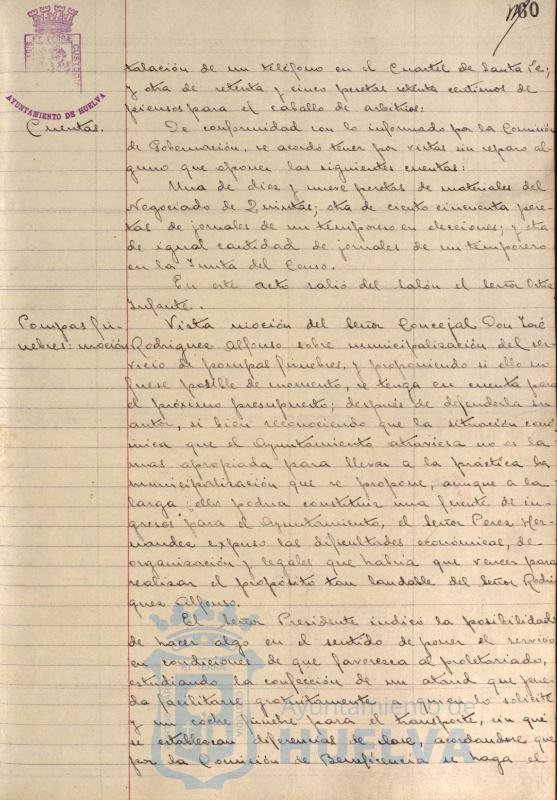 160
AYUNTAMIENTO DE HUELVA
talación de un teléfono en el Cuartel de Santa Fe;
y otra de setenta y cinco pesetas setenta centimos de
piensos para el caballo de arbitrios:
Cuentas.
De conformidad con lo informado por la Comisión
de Gobernación, se acordó tener por vistas sin reparo al-
guno que oponer las siguientes cuentas:
Una de diez y nueve pesetas de materiales del
Negociado de Quintas; otra de ciento cincuenta pese-
tas de jornales de un temporero en elecciones; y otra
de igual cantidad de jornales de un temporero
en la Junta del Censo.
En este acto salió del salón el señor
Infante.
Pompas fú-
nebres: moción
Vista moción del señor Concejal Don José
Rodriguez Alfonso sobre municipalización del ser-
vicio de pompas fúnebres, y proponiendo si ello no
fuese posible de momento, se tenga en cuenta para
el próximo presupuesto; después de defenderla su
autor, si bien reconociendo que la situación econó-
mica que el Ayuntamiento atraviesa no es la
mas apropiada para llevar a la práctica la
municipalización que se propone, aunque a la
larga ello podria constituir una fuente de in-
gresos para el Ayuntamiento, el señor Perez Her-
nandez expuso las dificultades económicas, de
organización y legales que habria que vencer para
realizar el propósito tan laudable del señor Rodri-
guez Alfonso.
El señor Presidente indicó la posibilidad
de hacer algo en el sentido de poner el servicio
en condiciones de que favorezca al proletariado,
estudiando la confección de un ataud que pue-
da facilitarse gratuitamente a quien lo solicite
y un coche fúnebre para el transporte, sin que
se establezcan diferencias de clase, acordandose que
por la Comisión de Beneficencia se haga el
Ayuntamiento de
HUELVA